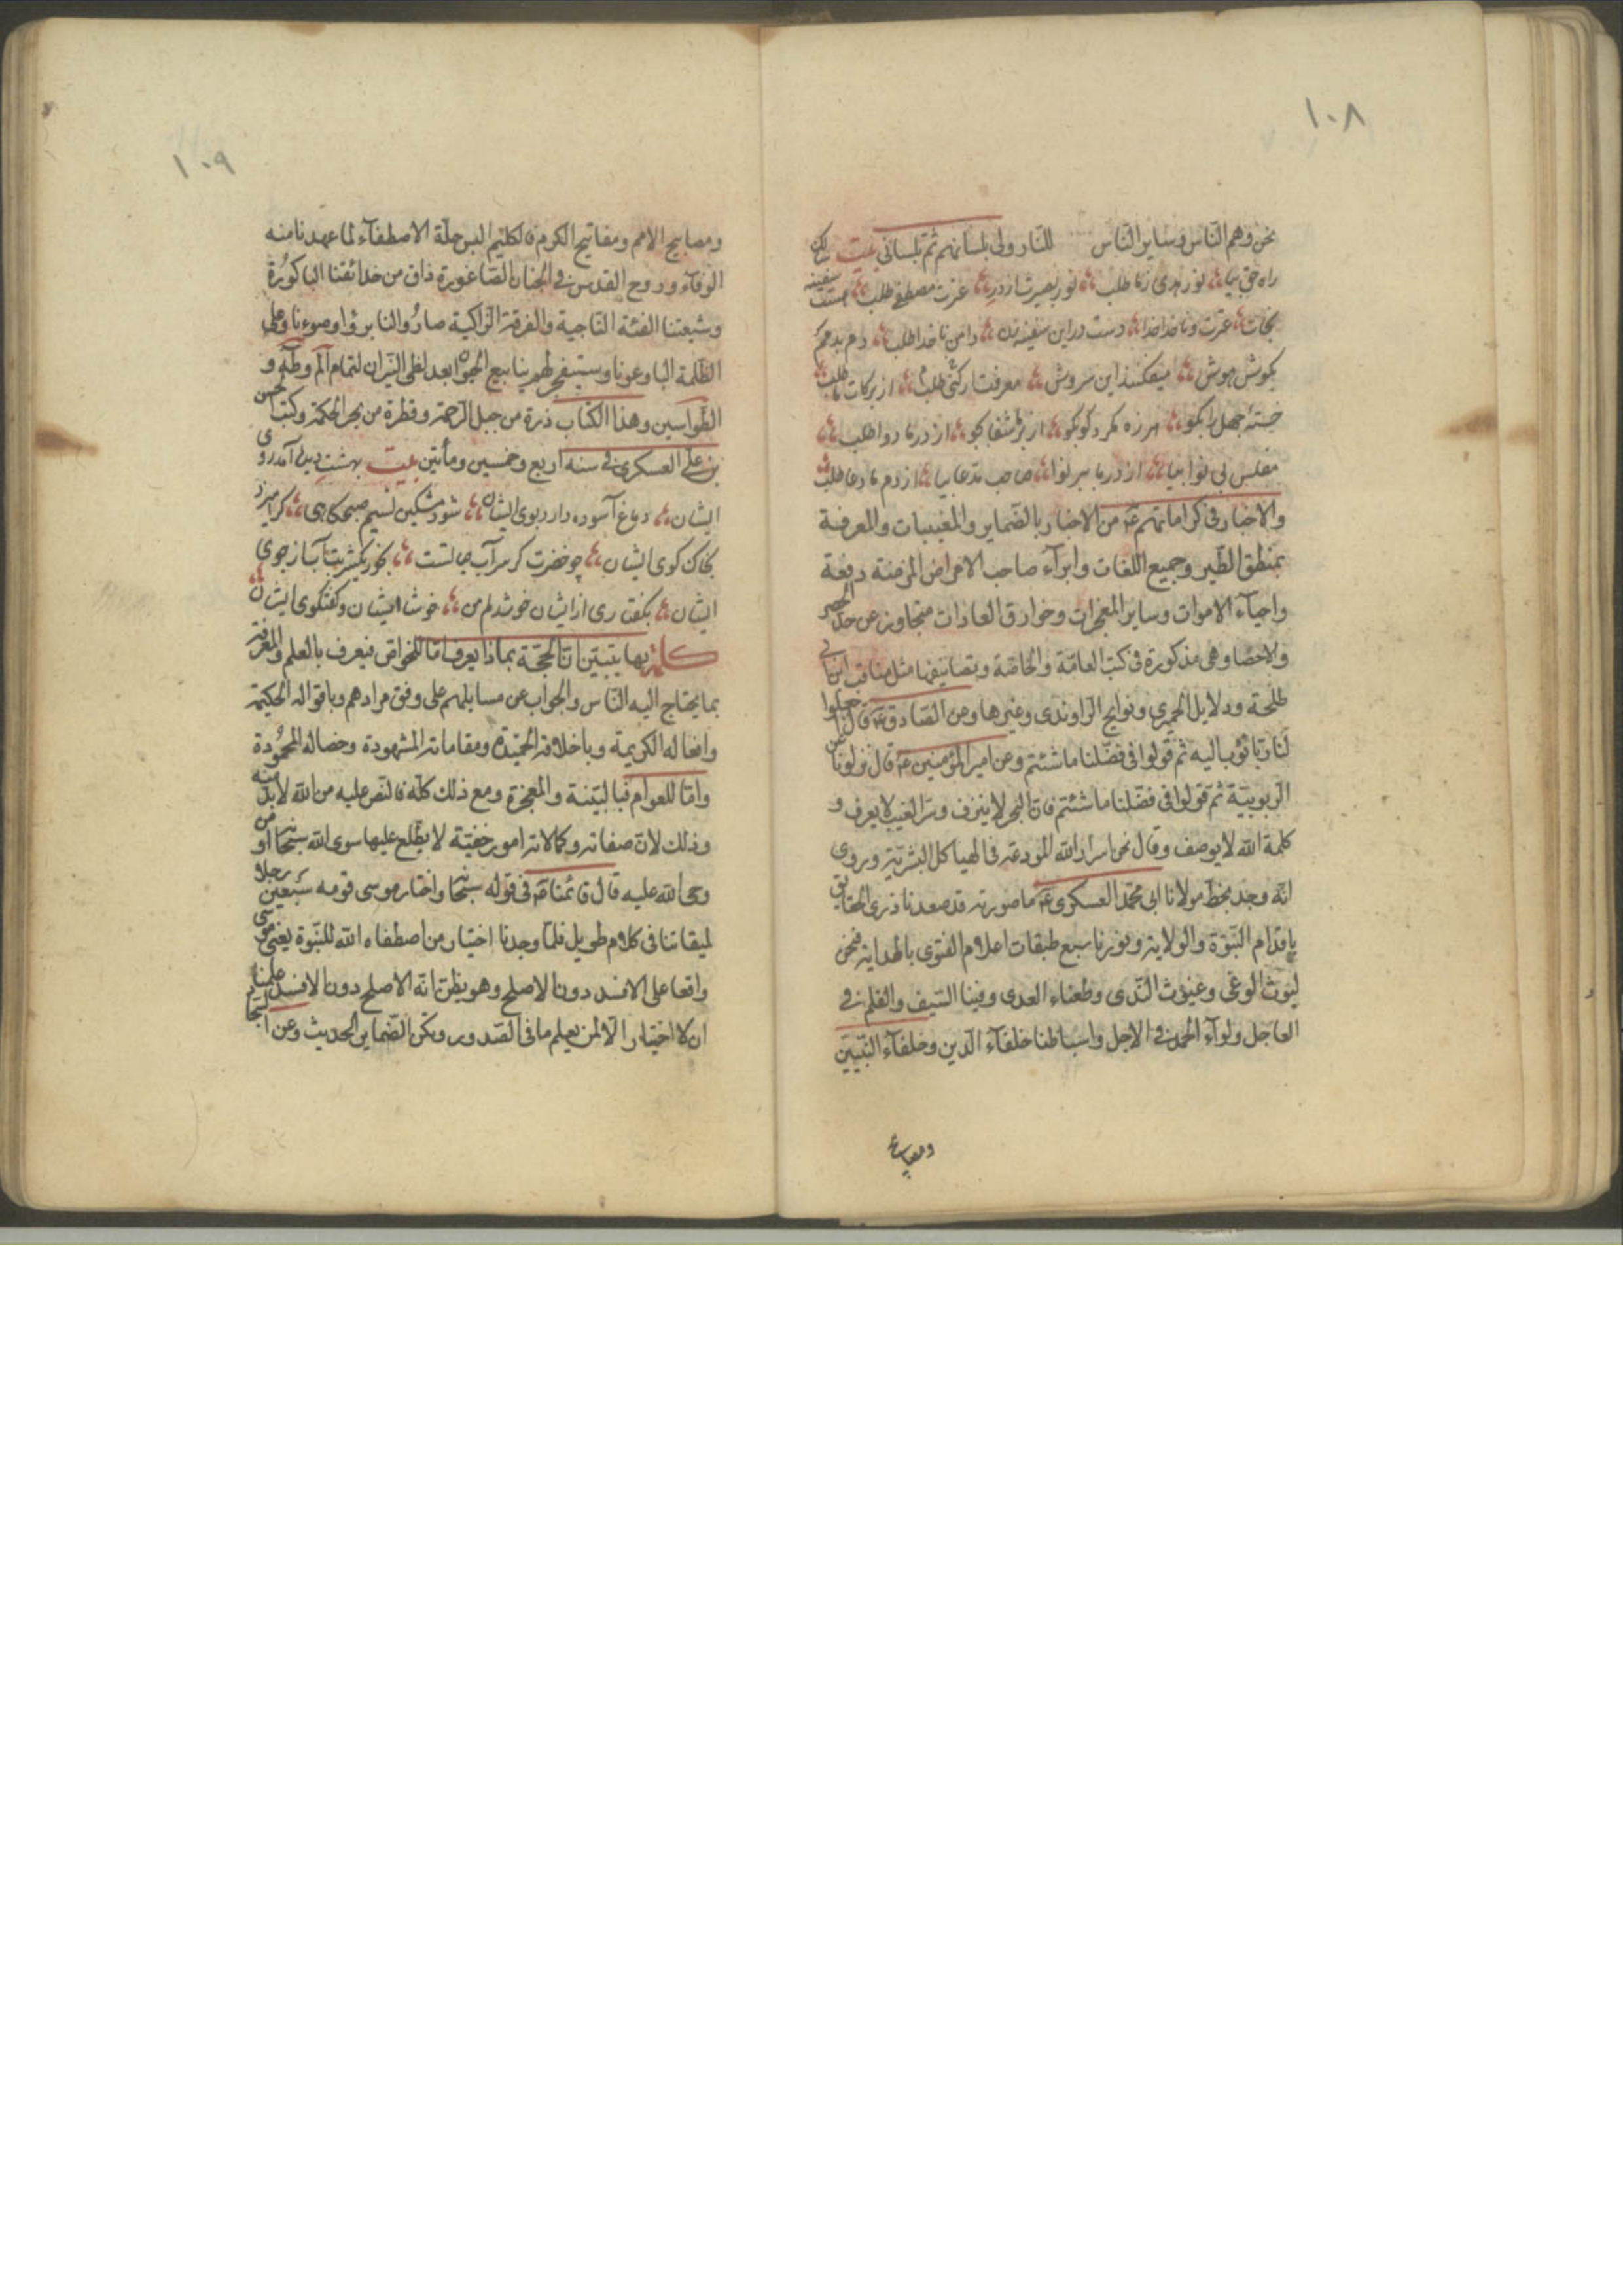 ١٠٨
نحن وهم الناس وساير الناس للنار ولى بلسانهم ثم بلسانى بيت سالك
راه حق بيا نور هدى زما طلب نور بصيرت از در عترت مصطفى طلب هست سفينه
نجات عترت وناخدا خدا دست دراين سفينه زن دامن ناخدا طلب دم بدمم
بكوش هوش ميفكند اين سروش معرفت ار كنى طلب از بركات ما طلب
خسته جهل را بكو هرزه مكرد كو بكو از بر ما شفا بجو از در ما دوا طلب
مفلس بى نوا بيا از در ما ببر نوا صاحب مدعا بيا از دم ما دعا طلب
والاخبار فى كراماتهم ع من الاخبار بالضماير والمغيبات والمعرفة
بمنطق الطير وجميع اللغات وابرآء صاحب الامراض المزمنة دفعة
واحيآء الاموات وساير المعجزات وخوارق العادات متجاوز عن حد الحصر
والاحصا وهى مذكورة فى كتب العامّة والخاصّة وتصانيفها مثل مناقب ابن ابى
طلحة ودلايل الحميرى وخرايج الراوندى وغيرها وعن الصادق ع قال اجعلوا
لنا ربّا نؤب اليه ثم قولوا فى فضلنا ما شئتم وعن امير المؤمنين ع قال نزلونا عن
الربوبيّة ثم قولوا فى فضلنا ما شئتم فان البحر لا ينزف وسرّ الغيب لا يعرف و
كلمة الله لا يوصف وقال نحن اسرار الله المودعة فى الهياكل البشرية وروى
انّه وجد بخط مولانا ابى محمد العسكرى ع ما صورته قد صعدنا ذرى الحقايق
باقدام النبوّة والولاية ونورنا سبع طبقات اعلام الفتوى بالهداية فنحن
ليوث الوغى وغيوث الندى وطعناء العدى وفينا السيف والقلم فى
العاجل ولوآء الحمد فى الاجل واسباطنا خلفآء الدين وخلفآء النبيين
ومصابيح
١٠٩
ومصابيح الامم ومفاتيح الكرم فالكليم البس حلّة الاصطفآء لما عهدنا منه
الوفآء وروح القدس فى الجنان الصاغورة ذاق من حدائقنا الباكورة
وشيعتنا الفئة الناجية والفرقة الزاكية صاروا لنا برؤا وصونا وعلى
الظلمة البا وعونا وسينفجر لهم ينابيع الحيوة بعد لظى النيران لتمام الم وطه و
الطواسين وهذا الكتاب ذرة من جبل الرحمة وقطرة من بحر الحكمة وكتب الحسن
بن على العسكرى فى سنه اربع وخمسين ومأتين بيت بهشت ديدل آمد روى
ايشان دماغ آسوده دارد بوى ايشان شود مشكين نسيم صبحكاهى كر آميزد
بخاك كوى ايشان چو خضرت كر سر آب حياتست بخور يكشربت آب از جوى
ايشان بكفتارى از ايشان خوشدلم من خوشا ايشان وكفتكوى ايشان
كلمة بها يتبين ان الحجّة بما ذا يعرف امّا للخواص فيعرف بالعلم والمعرفة
بما يحتاج اليه الناس والجواب عن مسايلهم على وفق مرادهم وباقواله الحكيمة
وافعاله الكريمة وباخلاقه الحميدة ومقاماته المشهودة وخصاله المحمودة
وامّا للعوام فبالبيّنة والمعجزة ومع ذلك كلّه فالنص عليه من الله لابدّ منه
وذلك لان صفاته وكمالاته امور خفيّة لا يطّلع عليها سوى الله سبحانه او من
وحى الله عليه قال قائمنا ع فى قوله سبحانه واختار موسى قومه سبعين رجلا
لميقاتنا فى كلام طويل فلمّا وجدنا اختيار من اصطفاه الله للنبوّة يعنى موسى
واقعا على الافسد دون الاصلح وهو يظن انّه الاصلح دون الافسد علمنا
ان لا اختيار الّا لمن يعلم ما فى الصدور وتكن الضماير الحديث وعن